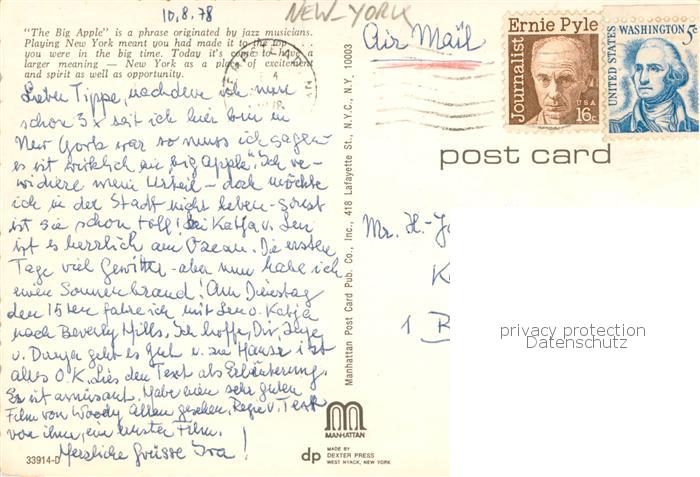 10.8.78
NEW-YORK
"The Big Apple" is a phrase originated by jazz musicians.
Playing New York meant you had made it to the top
you were in the big time. Today it's come to have a
larger meaning — New York as a place of excitement
and spirit as well as opportunity.
Lieber Tippe, nachdem ich nun
schon 3x seit ich hier bin in
New York war so muss ich sagen
es ist wirklich ein "big Apple". Ich re-
vidiere mein Urteil – doch möchte
ich in der Stadt nicht leben - sonst
ist sie schon toll! Bei Katja u. Len
ist es herrlich am Ozean. Die ersten
Tage viel Gewitter - aber nun habe ich
einen Sonnenbrand! Am Dienstag
den 15ten fahre ich mit Len u. Katja
nach Beverly Hills. Ich hoffe, Dir,
u. Dunja geht es gut u. zu Hause ist
alles O.K. Lies den Text als Erläuterung.
Es ist amüsant. Habe einen sehr guten
Film von Woody Allen gesehen. Regie u. Text
von ihm, ein ernster Film.
Herzliche Grüsse Ira!
33914-D
Manhattan Post Card Pub. Co., Inc., 418 Lafayette St., N.Y.C., N.Y. 10003
MANHATTAN
dp
MADE BY
DEXTER PRESS
WEST NYACK, NEW YORK
Air Mail
Ernie Pyle
Journalist
USA
16c
WASHINGTON 5c
UNITED STATES
post card
Mr. H.-
K
1 B
privacy protection
Datenschutz